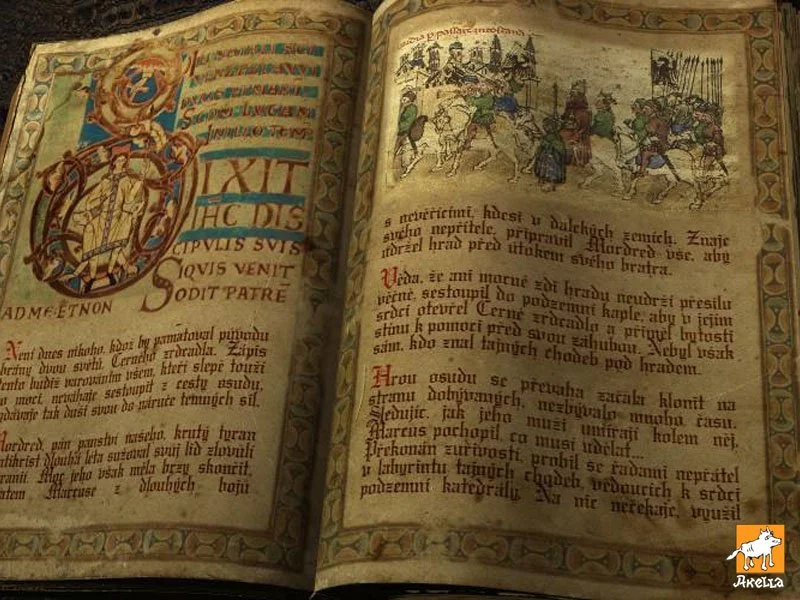 DIXIT
IHC DIS
CIPULIS SUIS
SIQUIS VENIT
ADME·ETNON
SODIT PATRĒ
Není dnes nikoho, kdož by pamatoval původu
brány dvou světů, Černého zrdcadla. Zápis
tento budiž varováním všem, kteří slepě touží
po moci, neváhaje sestoupit z cesty osudu,
vydávaje tak duši svou do náruče temných sil.
Mordred, pán panství našeho, krutý tyran
antikrist dlouhá léta sužoval svůj lid zlovůlí
tyranii. Moc jeho však měla brzy skončit,
bratem Marcuse z dlouhých bojů
s nevěřícími, kdesi v dalekých zemích. Znaje
svého nepřítele, připravil Mordred vše, aby
udržel hrad před útokem svého bratra.
Věda, že ani mocné zdi hradu neudrží přesilu
věčně, sestoupil do podzemní kaple, aby v jejím
srdci otevřel Černé zrdcadlo a přizval bytosti
stínu k pomoci před svou záhubou. Nebyl však
sám, kdo znal tajných chodeb pod hradem.
Hrou osudu se převaha začala klonit na
stranu dobývaných, nezbývalo mnoho času.
Sledujíc, jak jeho muži umírají kolem něj,
Marcus pochopil co musí udělat...
Překonán zuřivostí, probil se řadami nepřátel
v labyrintu tajných chodeb, vedoucích k srdci
podzemní katedrály. Na nic nečekaje, využil
Akella